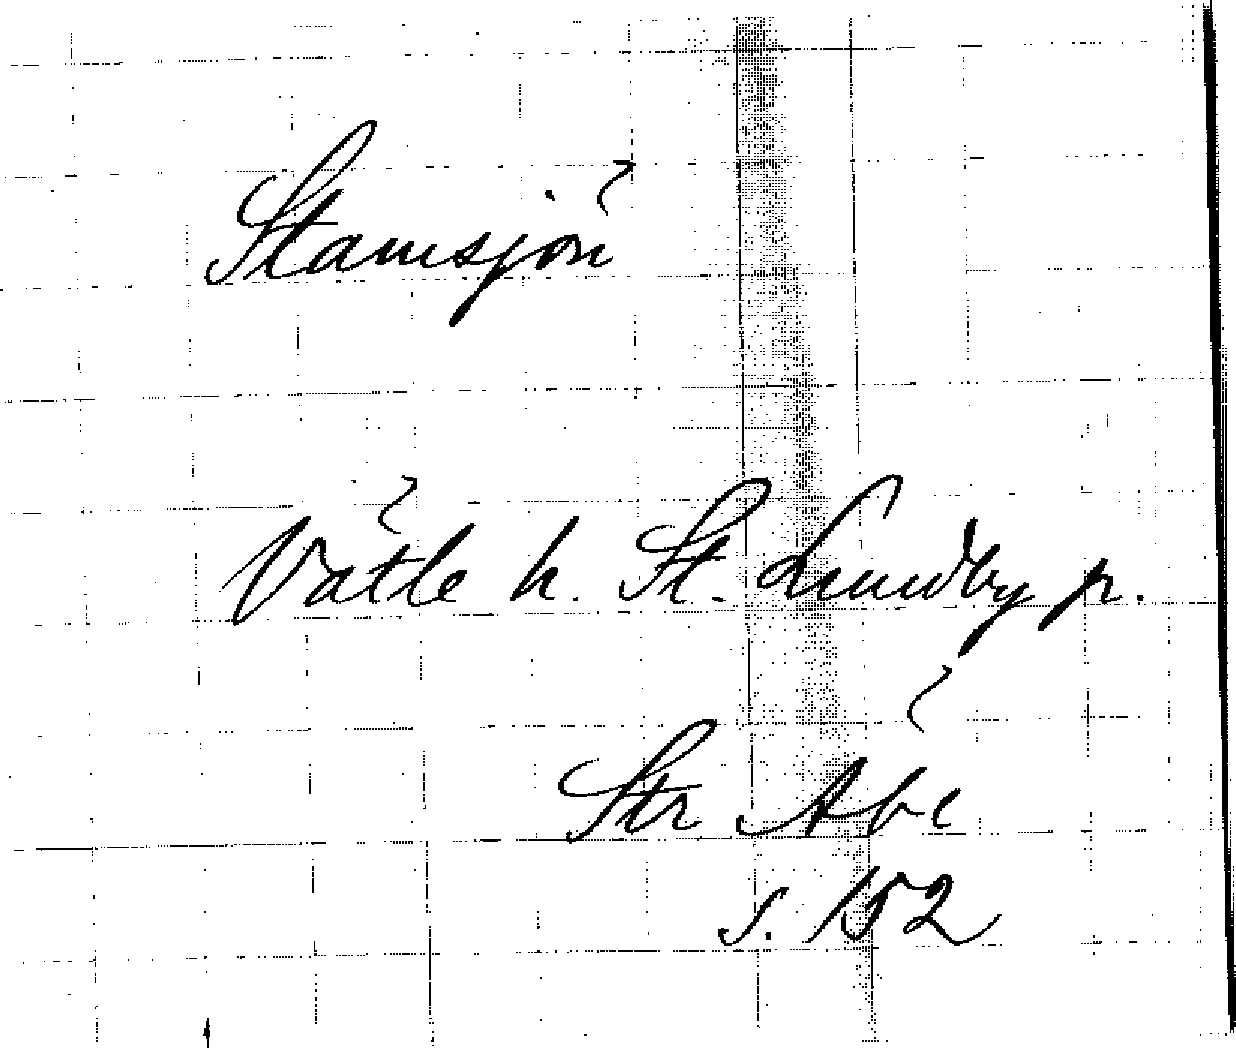 Stamsjön
Vätle h. St. Lundby p.
Str Abé
s. 152